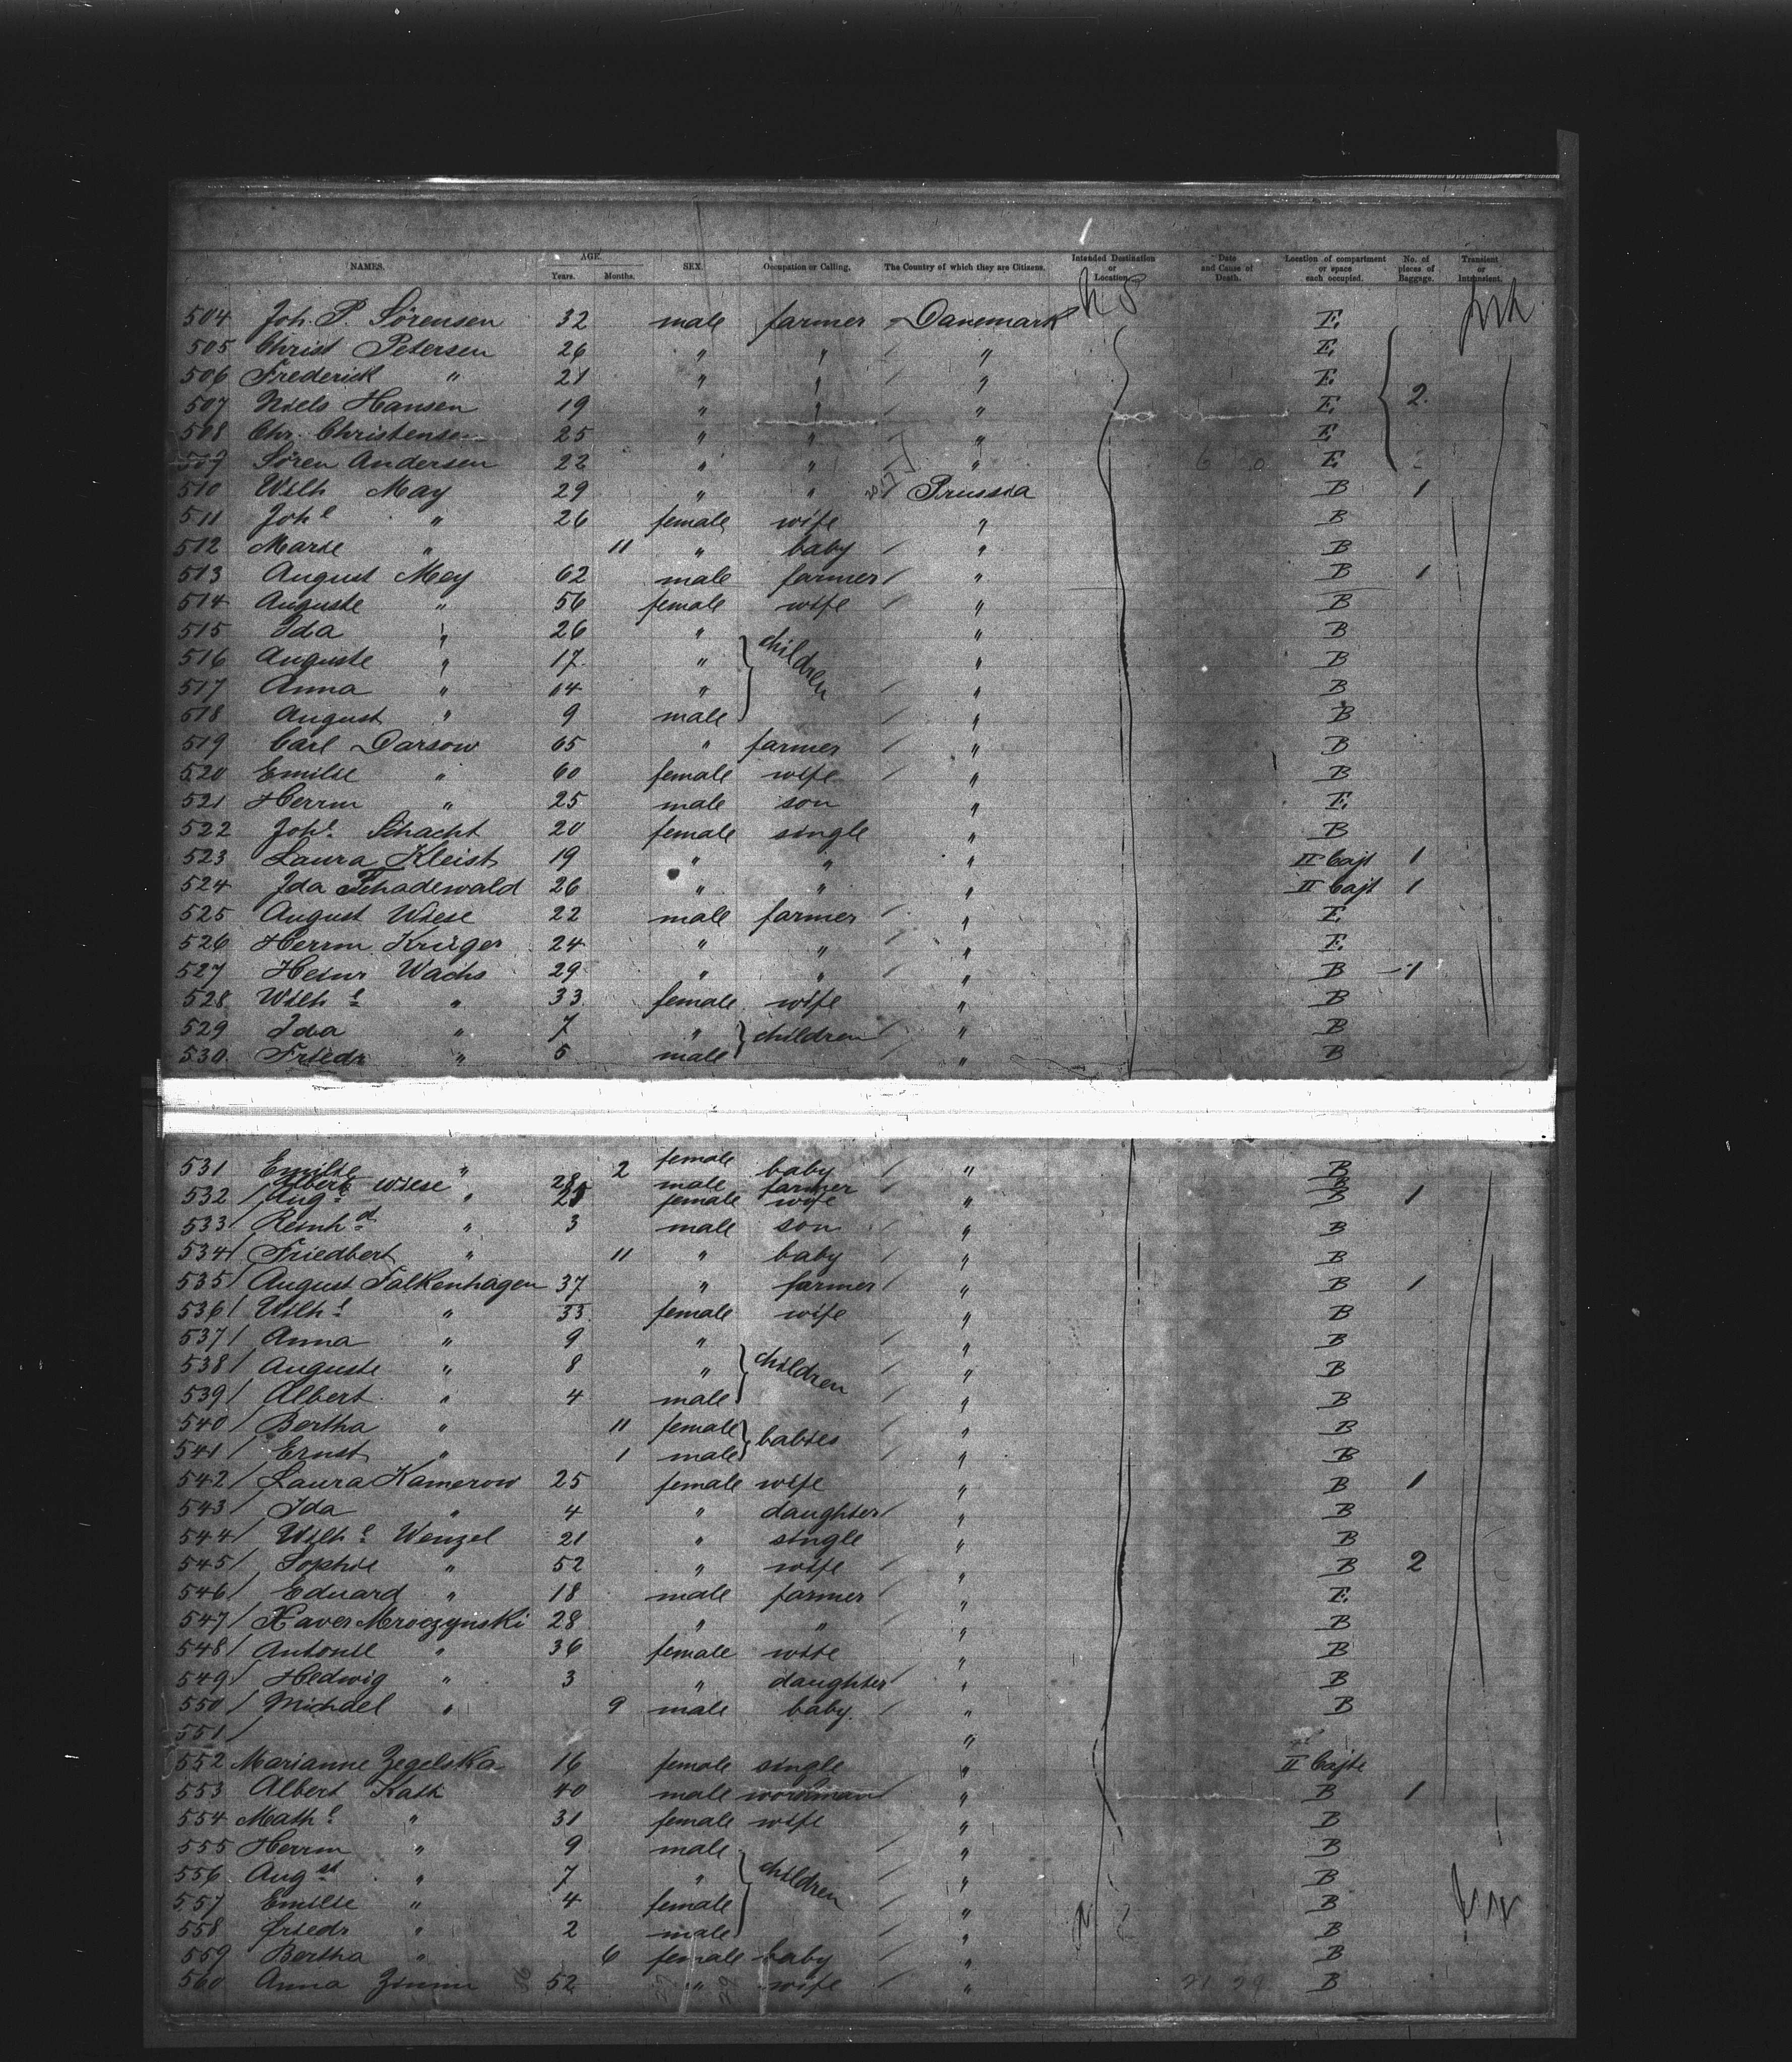 NAMES. AGE. Years. Months. SEX. Occupation or Calling. The Country of which they are Citizens. Intended Destination or Location. Date and Cause of Death. Location of compartment or space each occupied. No. of pieces of Baggage. Transient or Intransient.
504 Joh. P. Sörensen 32 male farmer Danemark E.
505 Christ Petersen 26 " " " E.
506 Frederick " 21 " " " E.
507 Niels Hansen 19 " " " E. 2.
508 Chr. Christensen 25 " " " E
509 Sören Andersen 22 " " " E.
510 Wilh May 29 " " Prussia B 1
511 Joh e " 26 female wife " B
512 Marie " 11 " baby " B
513 August Mey 62 male farmer " B 1
514 Auguste " 56 female wife " B
515 Ida " 26 " children " B
516 Auguste " 17 " " B
517 Anna " 14 " " B
518 August " 9 male " B
519 Carl Darsow 65 " farmer " B
520 Emilie " 60 female wife " B
521 Herrm " 25 male son " E.
522 Joh e. Schacht 20 female single " B
523 Laura Kleist 19 " " " II Cajt 1
524 Ida Thadewald 26 " " " II Cajt 1
525 August Wiese 22 male farmer " E.
526 Herrm Krüger 24 " " " E.
527 Heinr Wachs 29 " " " B 1
528 Wilh e " 33 female wife " B
529 Ida " 7 " children " B
530. Friedr " 5 male " B
531 Emilie " 2 female baby " B
Albert Wiese 28 male farmer B
532 Aug e " 21 female wife " B 1
533 Reinh d " 3 male son " B
534 Friedbert " 11 " baby " B
535 August Falkenhagen 37 " farmer " B 1
536 Wilh e " 33 female wife " B
537 Anna " 9 " children " B
538 Auguste " 8 " " B
539 Albert " 4 male " B
540 Bertha " 11 female babies " B
541 Ernst " 1 male " B
542 Laura Kamerow 25 female wife " B 1
543 Ida " 4 " daughter " B
544 Wilh e Wenzel 21 " single " B
545 Sophie " 52 " wife " B 2
546 Eduard " 18 male farmer " E.
547 Xaver Mroczynski 28 " " " B
548 Antonie " 36 female wife " B
549 Hedwig " 3 " daughter " B
550 Michael " 9 male baby " B
551 "
552 Marianne Zegelska 16 female single " II Cajte
553 Albert Kath 40 male workman " B 1
554 Math e " 31 female wife " B
555 Herrm " 9 male children " B
556 Aug st " 7 " " B
557 Emilie " 4 female " B
558 Friedr " 2 male " B
559 Bertha " 6 female baby " B
560 Anna Zimm 52 " wife " B